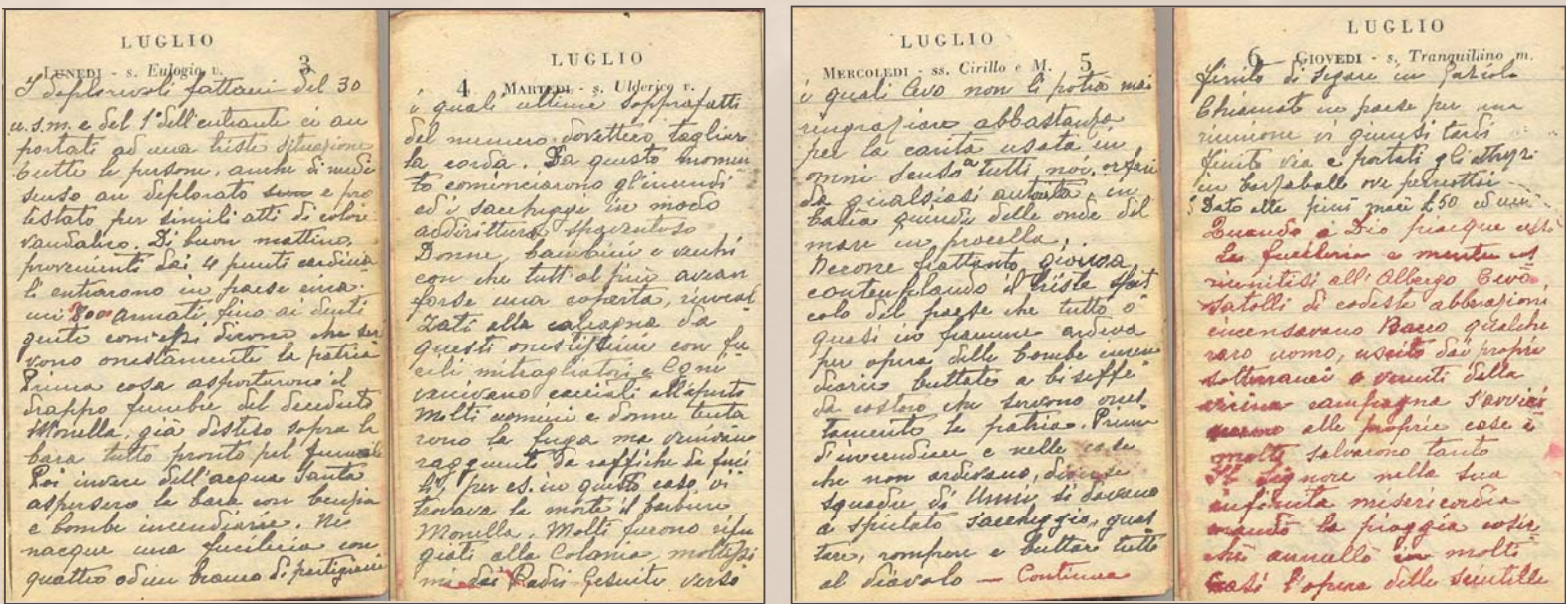 LUGLIO
LUNEDI - s. Eulogio v. 3
I deplorevoli fattacci del 30
u.s.m. e del 1° dell'entrante ci an
portati ad una triste situazione
tutte le persone, anche di medi
senso an deplorato e pro
testato per simili atti di colore
vandalico. Di buon mattino,
provenienti dai 4 punti cardina
li entrarono in paese circa
armati fino ai denti
gente com'essi dicono che ser
vono onestamente la patria
Prima cosa asportarono il
drappo funebre del deceduto
Monella, già disteso sopra la
bara tutto pronto pel funerale
Poi invece dell'acqua santa
aspersero la bara con benzina
e bombe incendiarie. Ne
nacque una fucileria con
quattro od un branco di partigiani
LUGLIO
4 MARTEDI - s. Ulderico v.
i quali ultimi sopprafatti
del numero dovettero tagliare
la corda. Da questo momen
to cominciarono gl'incendi
ed i saccheggi in modo
addirittura spaventoso
Donne, bambini e vecchi
con che tutt'al più avean
forse una coperta, rincal
zati alle calcagna da
questi onestissimi con fu
cili mitragliatori e
venivano cacciati all'aperto
Molti uomini e donne tenta
rono la fuga ma venivano
raggiunti da raffiche di fuci
li, per es. in questo caso vi
trovava la morte il barbiere
Monella. Molti furono rifu
giati alla Colonia, moltissi
mi dai Padri Gesuiti verso
LUGLIO
MERCOLEDI - ss. Cirillo e M. 5
i quali Cevo non li potrà mai
ringraziare abbastanza
per la carità usata in
omni senso a tutti noi, orfani
da qualsiasi autorità, in
balìa quindi delle onde del
mare in procella,
Nerone frattanto gioiva,
contemplando il triste spet
colo del paese che tutto o
quasi in fiamme ardeva
per opera delle bombe incen
diarie buttate a bizeffe
da costoro che servono ones
tamente la patria. Prima
d'incendiare e nelle case
che non ardevano, diverse
squadre di Unni si davano
a spietato saccheggio, guas
tare, rompere e buttare tutto
al diavolo — Continua
LUGLIO
6 GIOVEDI - s. Tranquilino m.
finito di segare in
Chiamato in paese per una
riunione vi giunsi tardi
finito via e portati gli attrezzi
in ove
Dato alle mani £ 50
Quando a Dio piacque cessò
la fucileria e mentre
riunitisi all'Albergo Cevo
satolli di codeste abberazioni
incensavano Bacco qualche
raro uomo, uscito dai propri
sotterranei o venuti della
vicina campagna s'avvici
narono alle proprie case e
molti salvarono tanto
Il Signore nella sua
infinita misericordia
mandò la pioggia cosic
chè annullò in molti
casi l'opera delle scintille